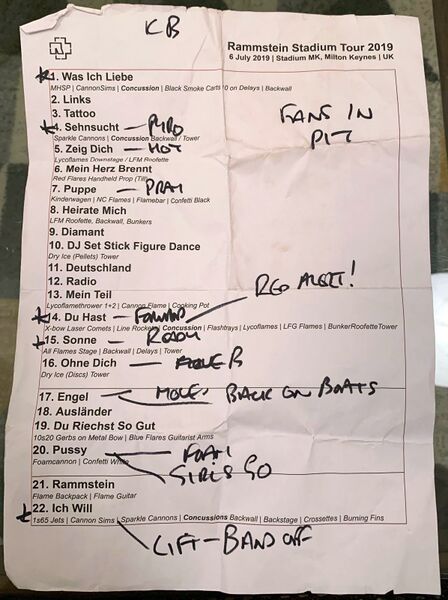 KB
Rammstein Stadium Tour 2019
6 July 2019 | Stadium MK, Milton Keynes | UK
1. Was Ich Liebe
MHSP | CannonSims | Concussion | Black Smoke Carts 10 on Delays | Backwall
2. Links
FANS IN
PIT
3. Tattoo
4. Sehnsucht — PYRO
Sparkle Cannons | Concussion Backwall / Tower
5. Zeig Dich — HOT
Lycoflames Downstage / LFM Roofette
6. Mein Herz Brennt
Red Flares Handheld Prop (Till)
7. Puppe — PRAM
Kinderwagen | NC Flames | Flamebar | Confetti Black
8. Heirate Mich
LFM Roofette, Backwall, Bunkers
9. Diamant
10. DJ Set Stick Figure Dance
Dry Ice (Pellets) Tower
11. Deutschland
12. Radio
RED ALERT!
13. Mein Teil
Lycoflamethrower 1+2 | Cannon Flame | Cooking Pot
14. Du Hast — FORWARD
X-bow Laser Comets | Line Rockets | Concussion | Flashtrays | Lycoflames | LFG Flames | BunkerRoofetteTower
15. Sonne — READY
All Flames Stage | Backwall | Delays | Tower
16. Ohne Dich — B
Dry Ice (Discs) Tower
17. Engel — BACK ON BOATS
18. Ausländer
19. Du Riechst So Gut
10s20 Gerbs on Metal Bow | Blue Flares Guitarist Arms
20. Pussy — FOAM
Foamcannon | Confetti White
GIRLS GO
21. Rammstein
Flame Backpack | Flame Guitar
22. Ich Will
1s65 Jets | Cannon Sims | Sparkle Cannons | Concussions Backwall | Backstage | Crossettes | Burning Fins
LIFT - BAND OFF